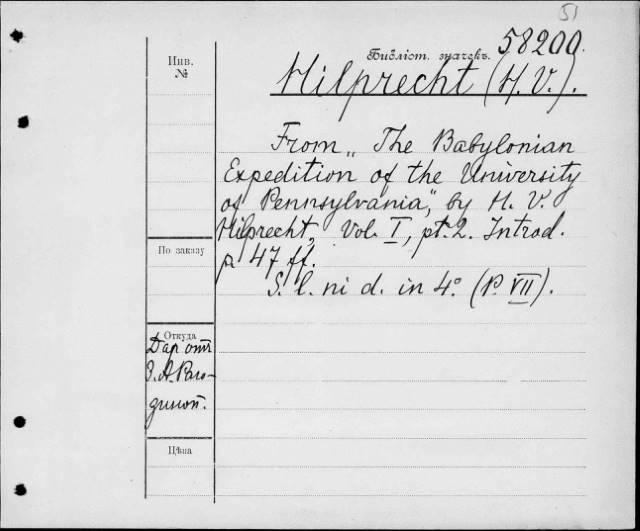 51
58200.
Инв.
№
Библіот. значекъ.
Hilprecht (H. V.).
From „The Babylonian
Expedition of the University
of Pennsylvania“, by H. V.
Hilprecht, Vol. I, pt. 2. Introd.
p. 47 ff.
S. l. ni d. in 4º. (P. VII).
По заказу
Откуда
Даръ отъ
З. А. Раго-
зиной.
Цѣна